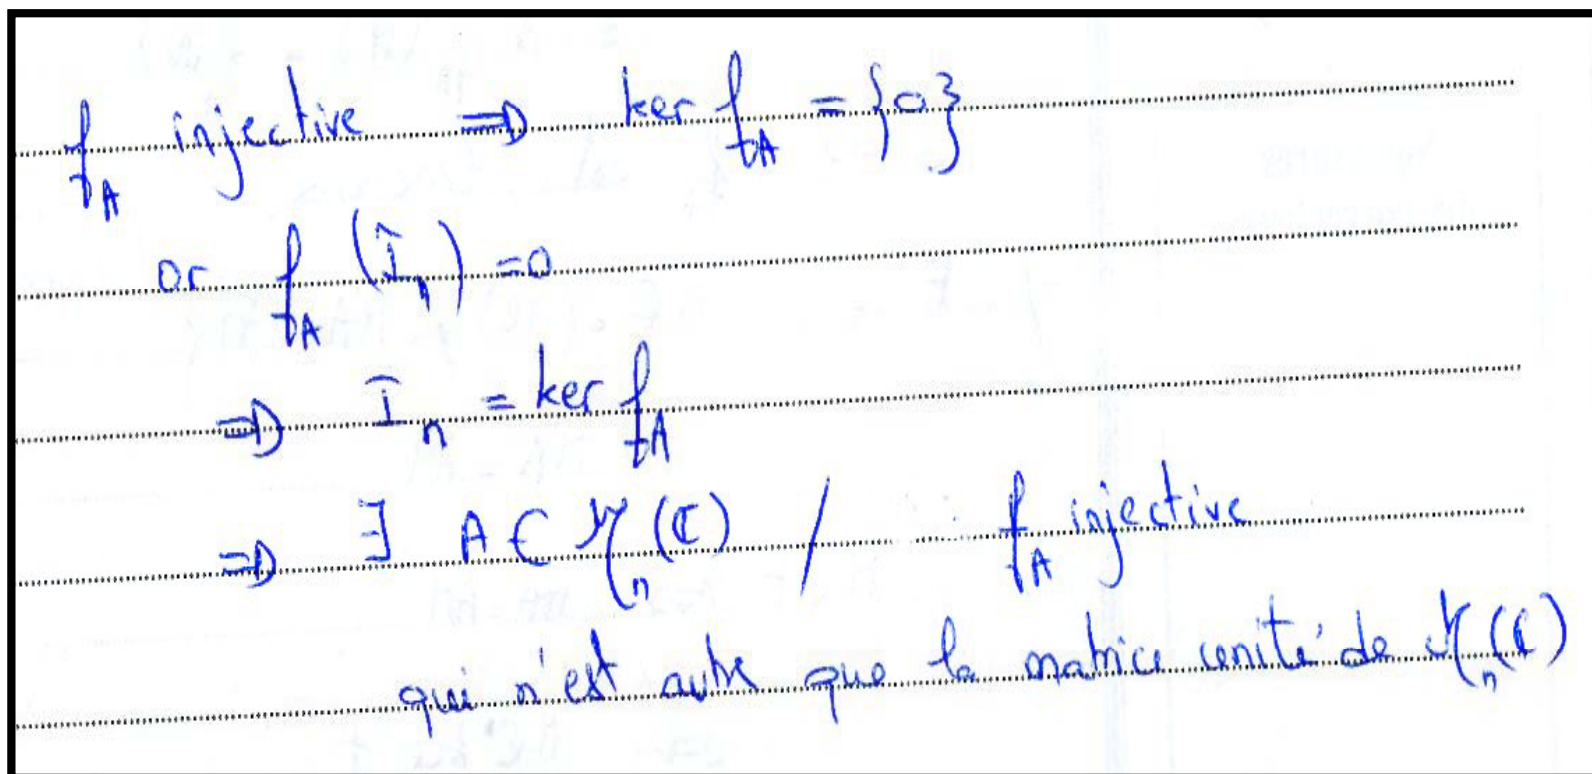 f_A injective ⇒ ker f_A = {0}
or f_A (I_n) = 0
⇒ I_n = ker f_A
⇒ ∃ A ∈ M_n(ℂ) / f_A injective
qui n'est autre que la matrice unité de M_n(ℂ)